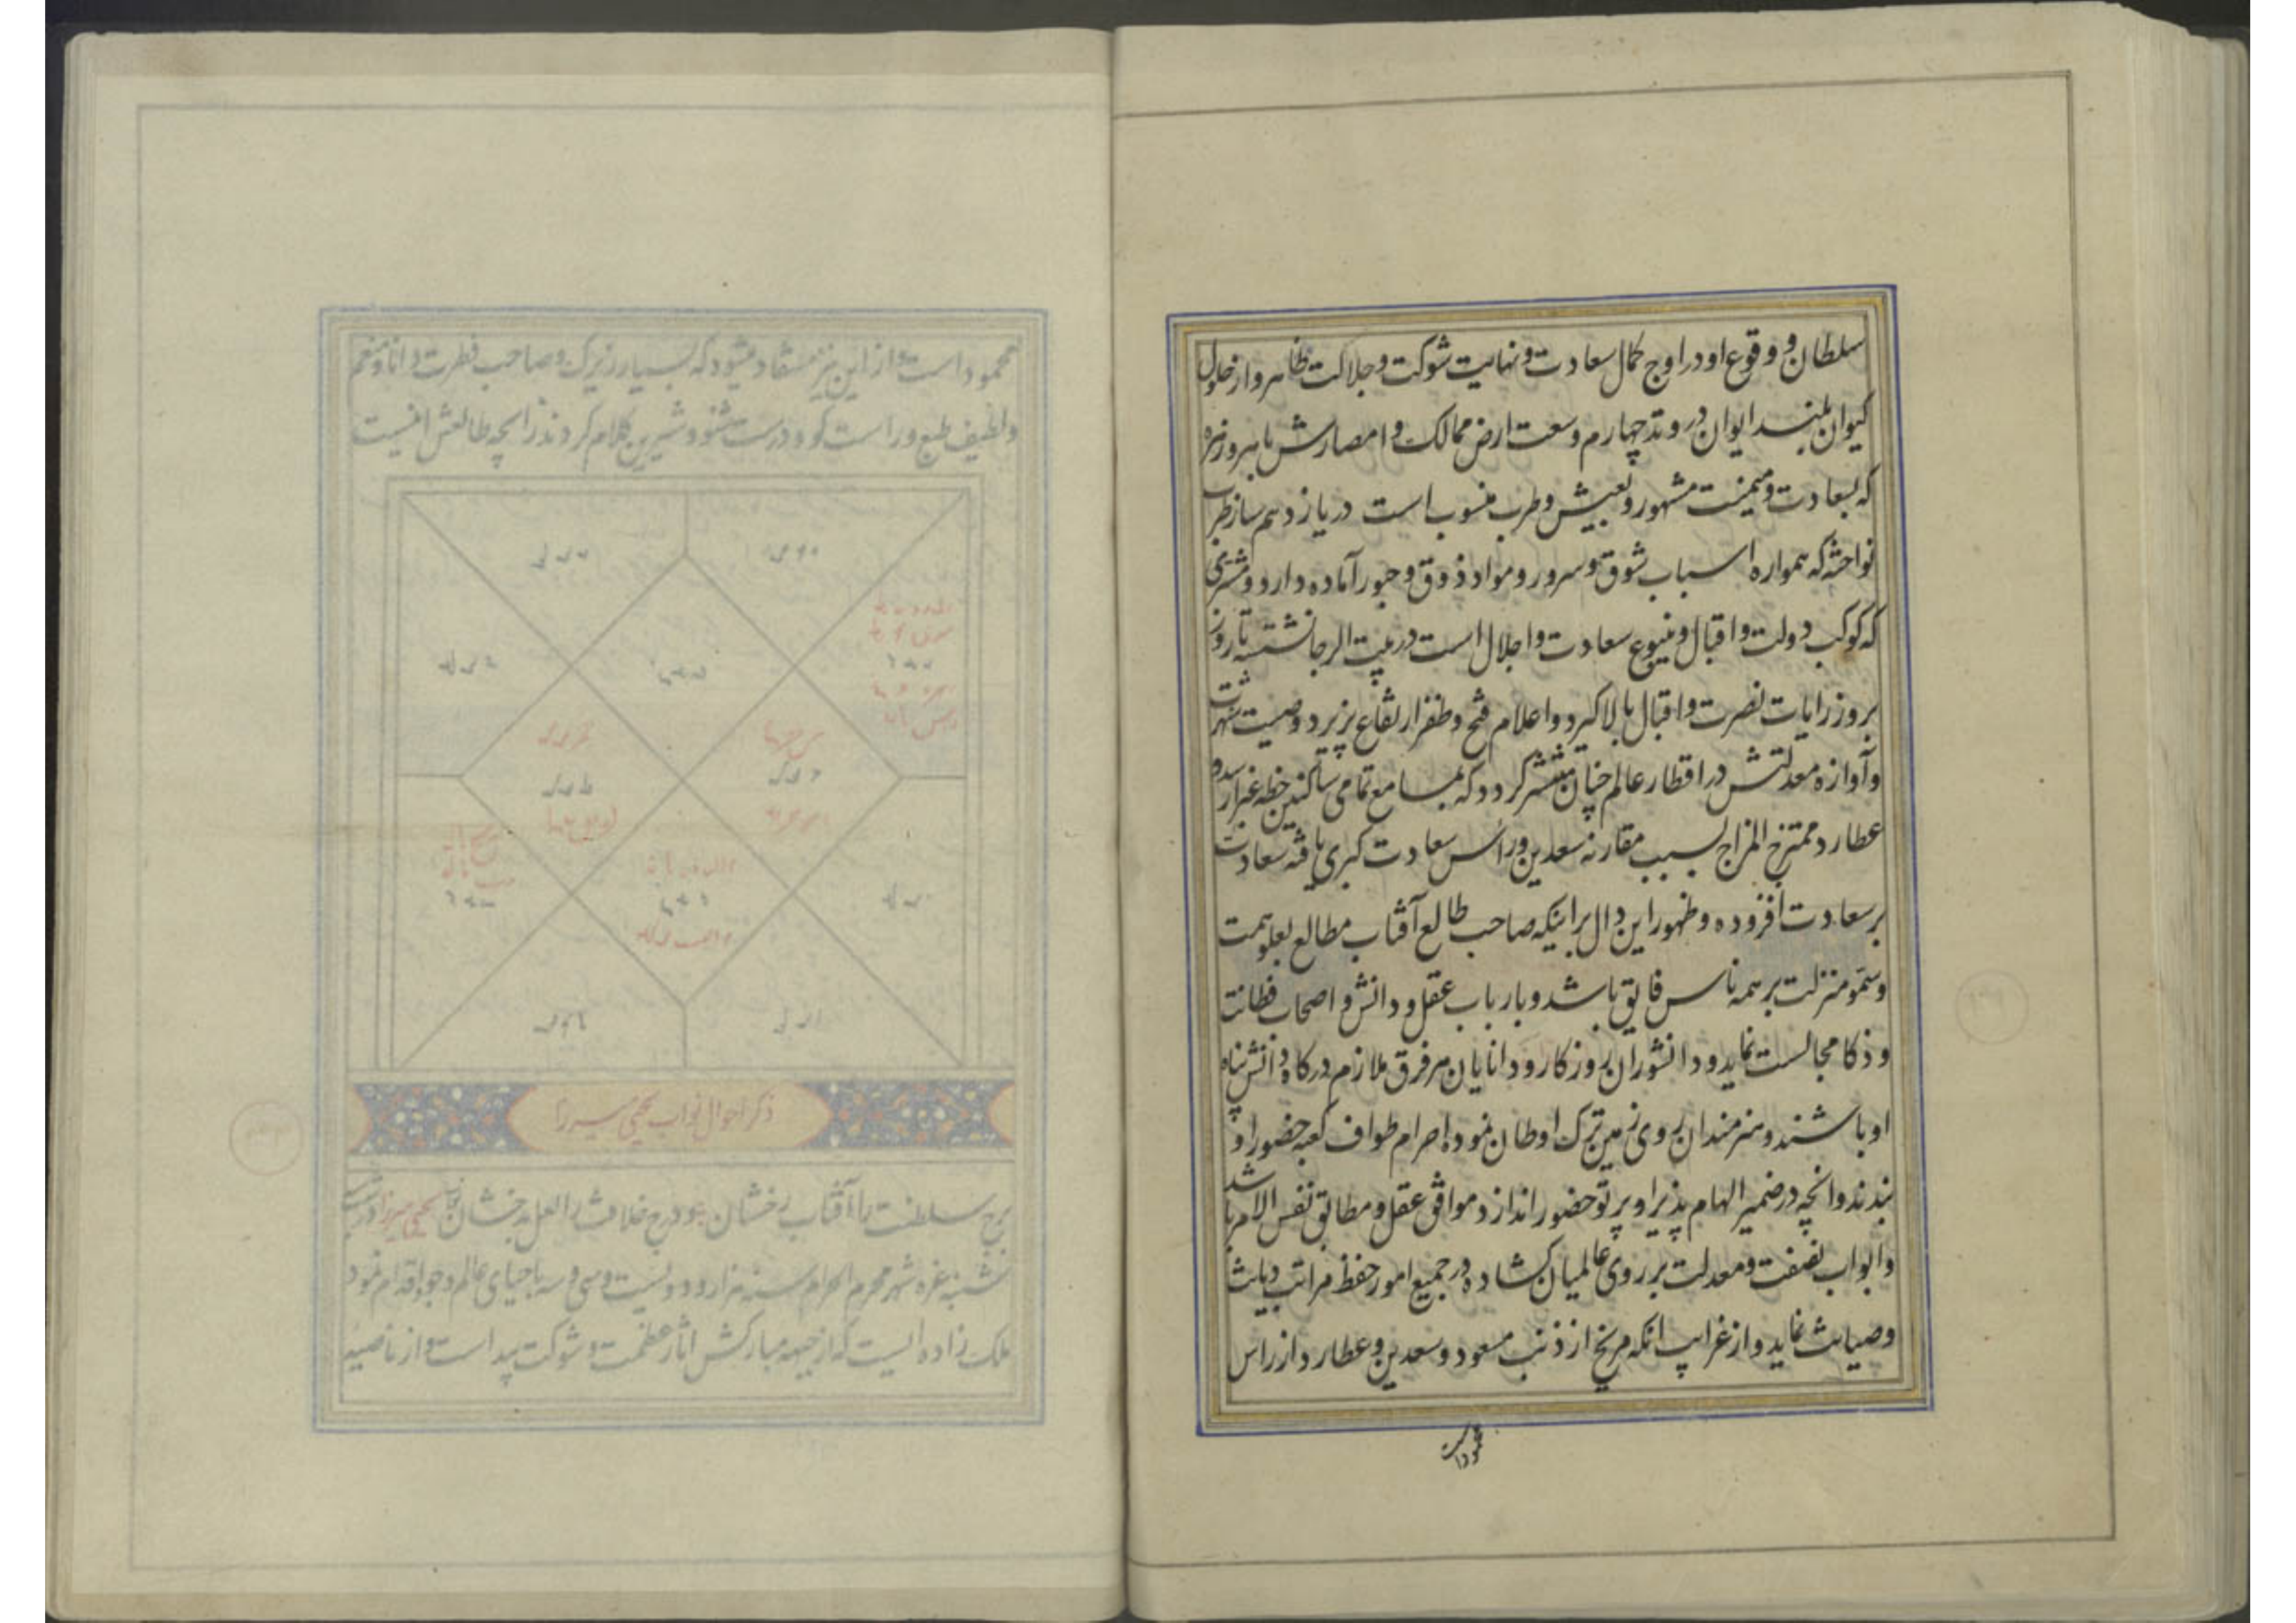 سلطان و وقوع او در اوج کمال سعادت و نهایت شوکت و جلالت ظاهر و از حلول
کیوان بلند ایوان در وتد چهارم وسعت ارض ممالک و امصارش باهر و زهره
که بسعادت و میمنت مشهور و بعیش و طرب منسوب است در یازدهم ساز طرب
نواخته که همواره اسباب شوق و سرور و مواد ذوق و حبور آماده دارد و مشتری
که کوکب دولت و اقبال و ینبوع سعادت و اجلال است در بیت الرجا نشسته تا روز
بروز رایات نصرت و اقبال بالا گیرد و اعلام فتح و ظفر ارتفاع پزیرد و صیت شهرت
و آوازه معدلتش در اقطار عالم چنان منتشر گردد که بمسامع تمامی ساکنین خطه غبرا رسد و
عطارد ممتزج المزاج بسبب مقارنه سعدین و راس سعادت کبری یافته سعادت
بر سعادت افزوده و ظهور این دال بر اینکه صاحب طالع آفتاب مطالع بعلو همت
و سمو منزلت بر همه ناس فایق باشد و با ارباب عقل و دانش و اصحاب فطانت
و ذکا مجالست نماید و دانشوران روزگار و دانایان هر فرق ملازم درگاه دانش پناه
او باشند و هنرمندان روی زمین ترک اوطان نموده احرام طواف کعبه حضور او
بندند و انچه در ضمیر الهام پذیر او پرتو حضور اندازد موافق عقل و مطابق نفس الامر باشد
و ابواب نصفت و معدلت بر روی عالمیان گشاده در جمیع امور حفظ مراتب دیانت
و صیانت نماید و از غرایب انکه مریخ از ذنب مسعود و سعدین و عطارد از راس
محمود است و از این نیز مستفاد میشود که بسیار زیرک و صاحب فطرت و دانا و منعم
و لطیف طبع و راست گو و درست شنو و شیرین کلام گردد زایچه طالعش اینست
ذکر احوال نواب یحیی میرزا
برج سلطنت را آفتاب رخشان و درج خلافت را لعل بدخشان نواب یحیی میرزا در شب
شنبه غره شهر محرم الحرام سنه هزار و دویست و سی و سه باحیای عالم وجود اقدام نمود
ملک زاده ایست که از جبهه مبارکش آثار عظمت و شوکت پیداست و از ناصیه